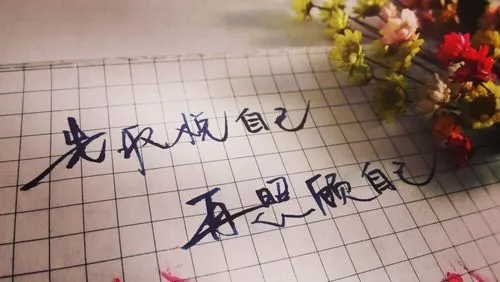 先取悦自己
再照顾自己